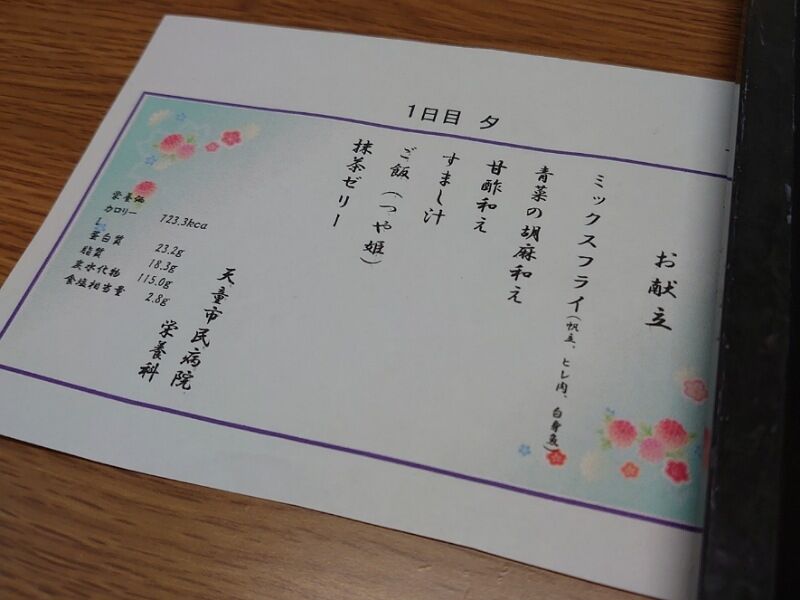 1日目 夕
お献立
ミックスフライ(帆立、ヒレ肉、白身魚)
青菜の胡麻和え
甘酢和え
すまし汁
ご飯(つや姫)
抹茶ゼリー
天童市民病院
栄養科
栄養価
カロリー 723.3kca
l
蛋白質 23.2g
脂質 18.3g
炭水化物 115.0g
食塩相当量 2.8g